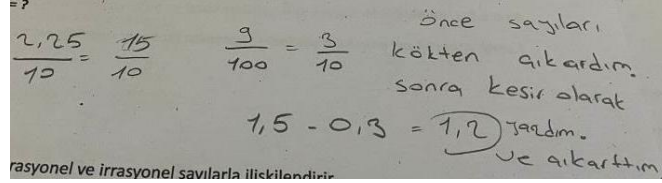 = ?
2,25/10 = 15/10 9/100 = 3/10
önce sayıları
kökten çıkardım.
sonra kesir olarak
1,5 - 0,3 = 1,2 yazdım.
ve çıkarttım
rasyonel ve irrasyonel sayılarla ilişkilendirir